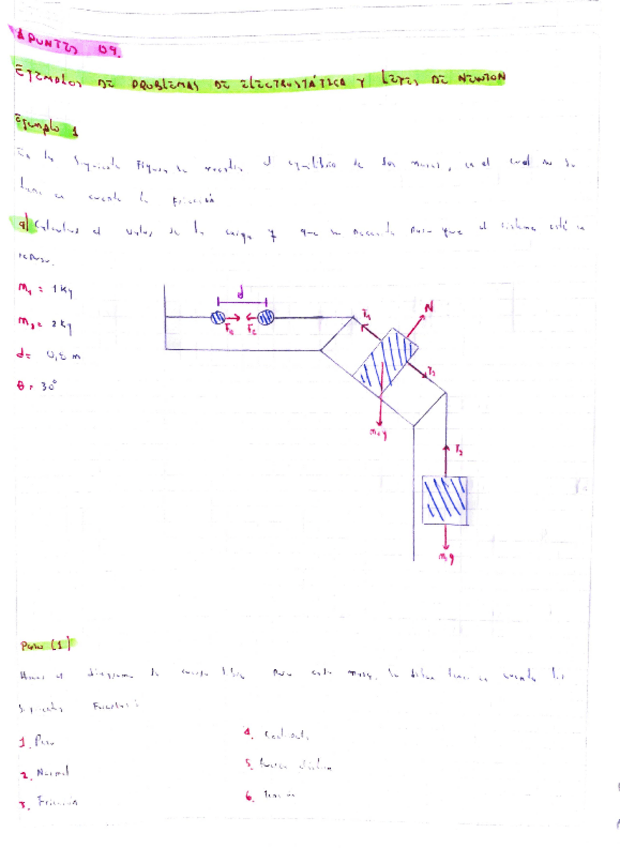 APUNTES 09.
EJEMPLOS DE PROBLEMAS DE ELECTROSTÁTICA Y LEYES DE NEWTON
Ejemplo 1
En la siguiente figura se muestra el equilibrio de dos masas, en el cual no se
tiene en cuenta la fricción
a) Calcular el valor de la carga q que se necesita para que el sistema esté en
reposo.
m₁ = 1 kg
m₂ = 2 kg
d = 0,5 m
θ = 30°
d
Fe Fe
T₁
N
T₂
m₁g
T₂
m₂g
Paso (1)
Hacer el diagrama de cuerpo libre para cada masa, se deben tener en cuenta las
siguientes fuerzas:
1. Peso
2. Normal
3. Fricción
4.
5. Fuerza eléctrica
6. Tensión